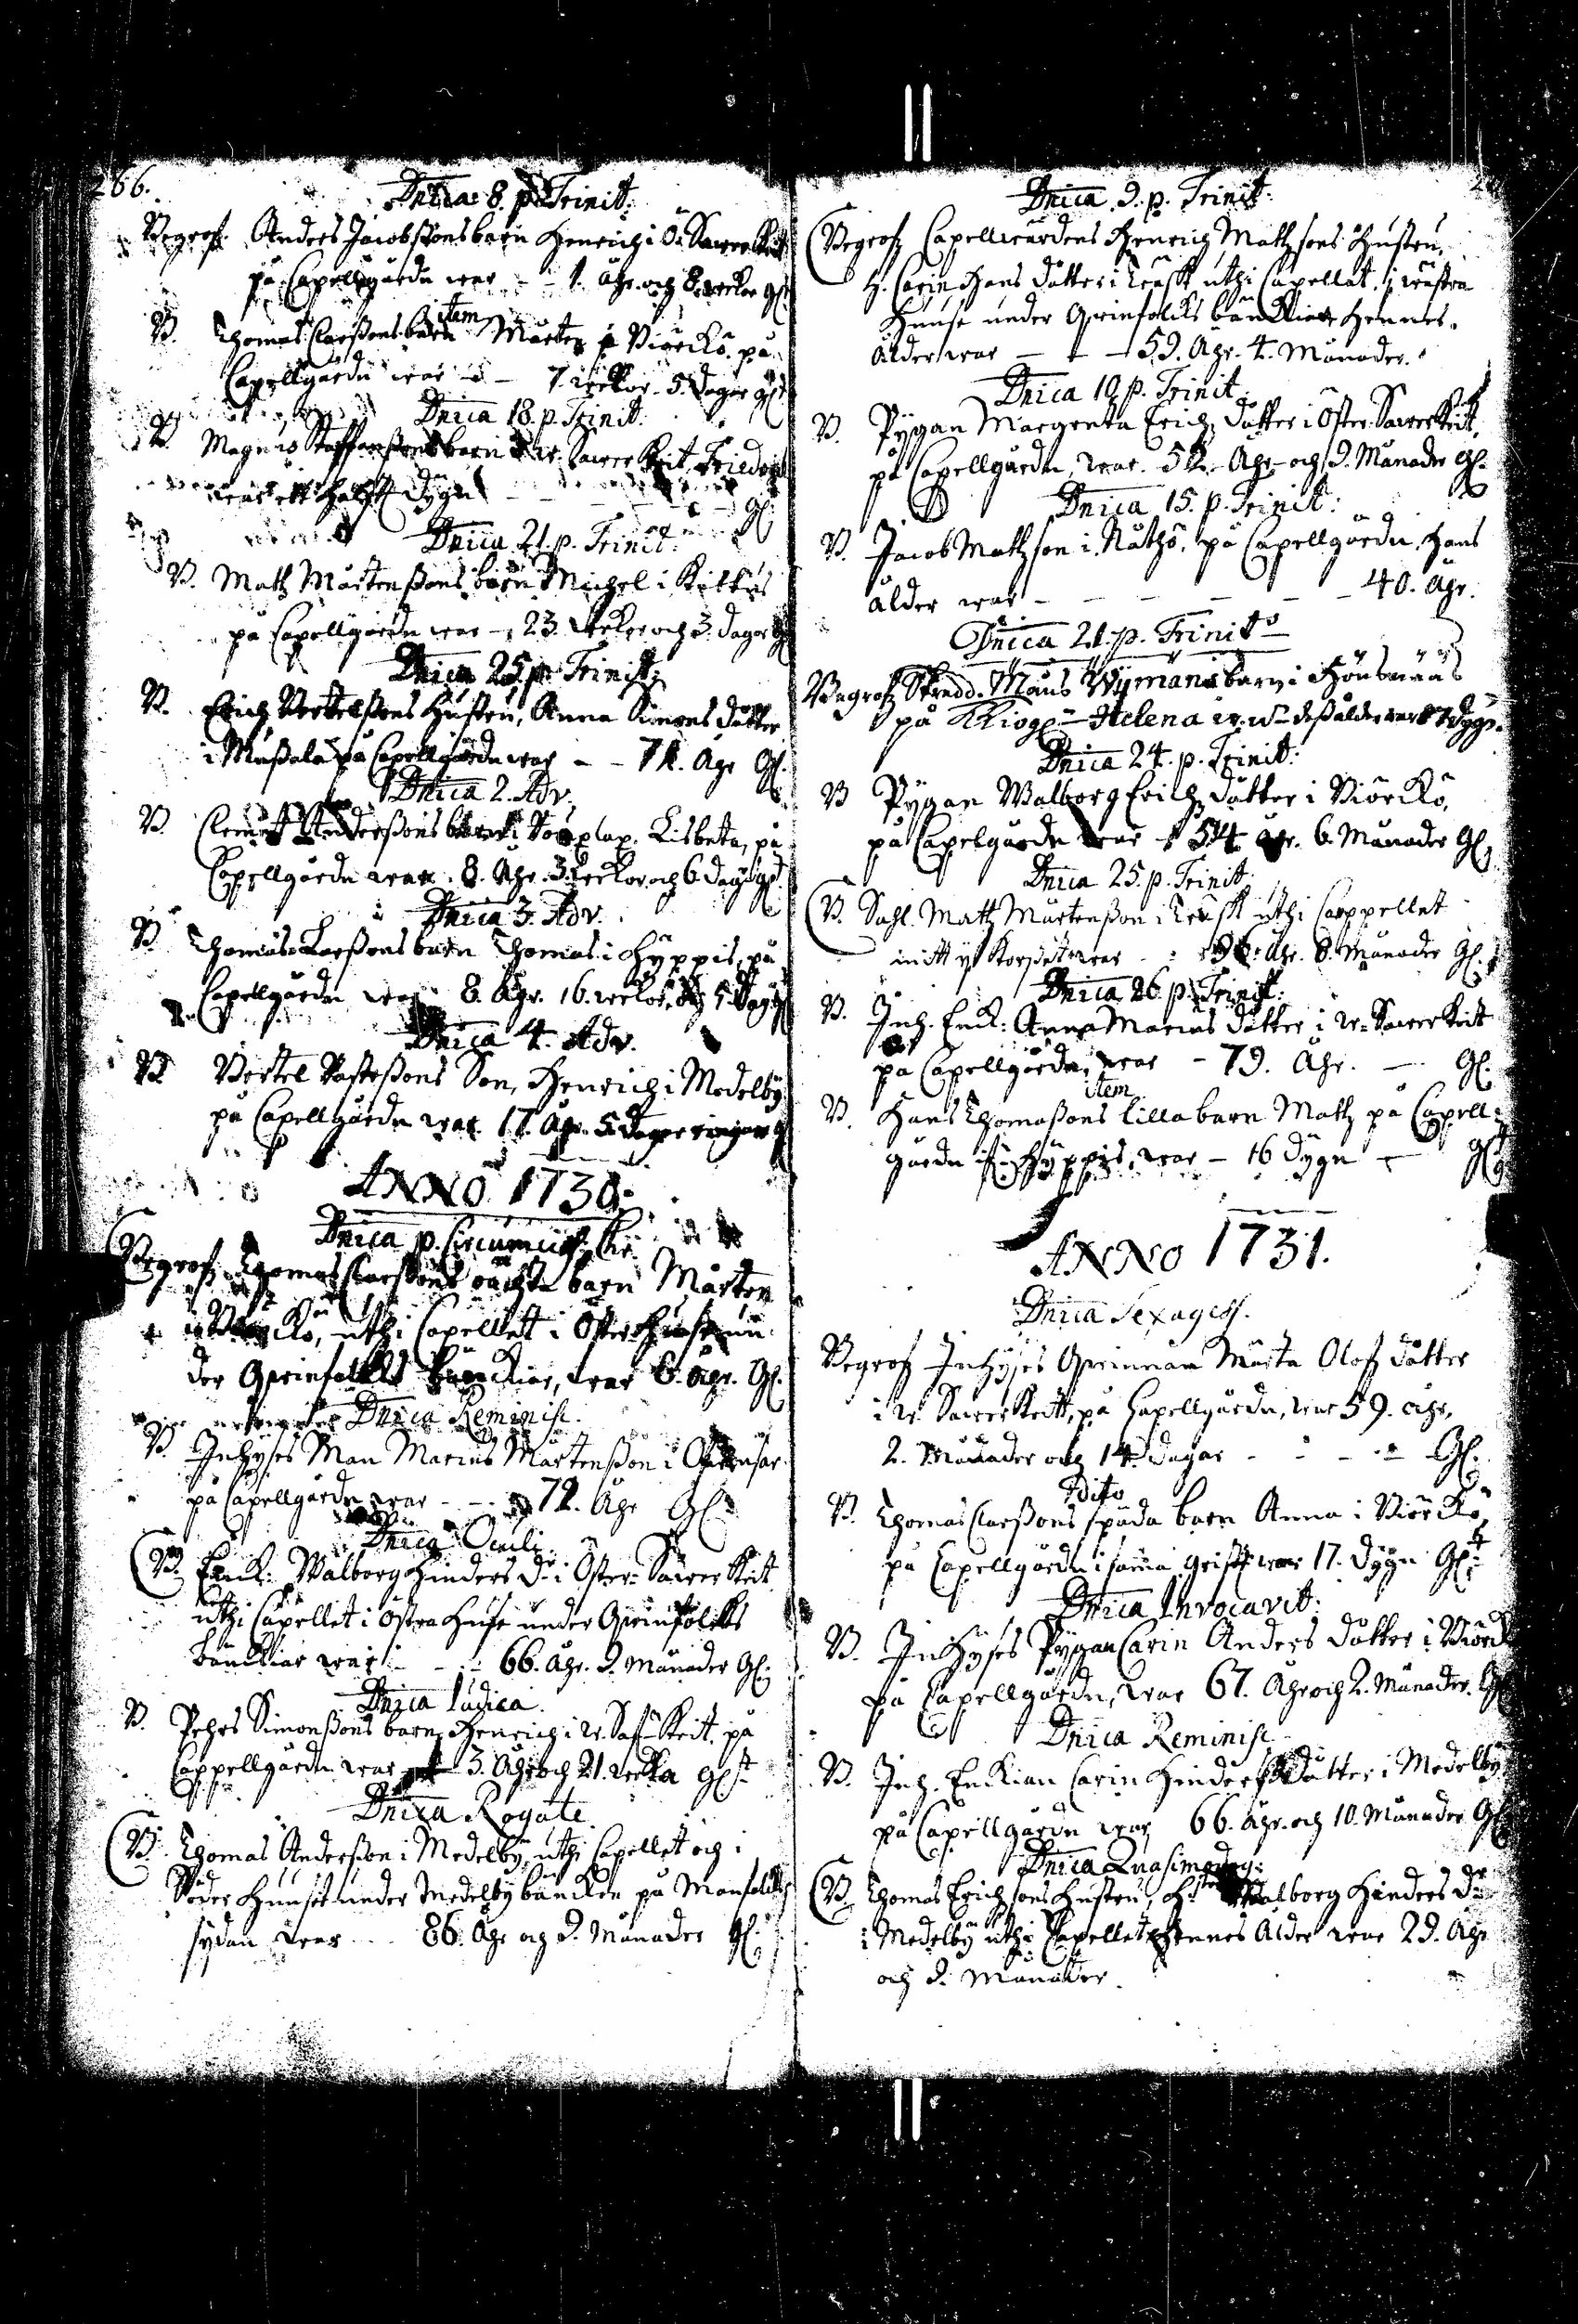 266.
Dnica 8. p. Trinit:
Begrof. Anders Jacobssons barn Henrich i Ö. Sawerkeit
på Capellgårdn war - - 1. åhr och 8. wekor gl.
item
B. Thomas Clarssons barn Mårten i Biörkö på
Capellgårdn war - - 7. wekor. 5. dagar gl.
Dnica 18. p. Trinit:
B. Magnus Staffanssons barn i W. Sawerkeit, Friedrich
war ett halft dygn - - - gl.
Dnica 21. p. Trinit:
B. Math Mårtenssons barn Michel i Kettus
på Capellgårdn war - 23. wekor och 3. dagar gl
Dnica 25. p. Trinit:
B. Erich Bertelssons hustru, Anna Simons dåtter
i Mussala på Capellgårdn war - - 71. åhr gl.
Dnica 2. Adv.
B. Clemet Anderssons barn i Lisbeta, på
Capellgårdn war. 8. åhr. 3. wekor och 6 dag. gl.
Dnica 3. Adv.
B. Thomas Larssons barn Thomas i Hyppis, på
Capellgårdn war 8. åhr. 16. wekor, och 5. dag gl
Dnica 4. Adv.
B. Bertel Påfwessons Son, Henrich i Medelby
på Capellgårdn war 17. åhr 5. dagar gl
ANNO 1730.
Dnica p. Circumcis. Chr.
Begrof. Thomas Clarssons barn Mårten
i Biörkö, uthi Capellet i Öster huuse un-
der qwinfolks bänkiar, war 6. åhr. gl.
Dnica Reminisc.
B. Inhyses Man Marcus Mårtensson i
på Capellgårdn war - - 72. åhr gl
Dnica Oculi.
B. Enck: Walborg Hinders d: i Öster Sawerkeit
uthi Capellet i östra huse under qwinfolks
bänkiar war - - 66. åhr. 9. månader gl.
Dnica Judica.
B. Pehrs Simonssons barn Henrich i W. Safwkeit, på
Cappellgårdn war 3. åhr och 21. wecka gl
Dnica Rogate.
B. Thomas Andersson i Medelby, uthi Capellet och i
Söder huuset under Medelby bäncken på Manfolcks
sydan war - - 86. åhr och 9. månader gl.
Dnica. 9. p. Trinit:
Begrof Capellwärdens Henrich Mathsons hustru,
H. Carin Hans dåtter i Kräsk uthi Capellet, i wästra
huuse under qwinfolks bänkiar hennes
ålder war - - - 59. åhr. 4. månader.
Dnica 10. p. Trinit.
B. Pygan Margreta Erichs dåtter i Öster Sawerkeit,
på Capellgårdn, war. 52. åhr och 9. månader gl.
Dnica 15. p. Trinit:
B. Jacob Mathson i Räthö, på Capellgårdn, hans
ålder war - - - - - - 40. åhr.
Dnica 21. p. Trinit:
Begrof Skredd. Måns Wymans barn i Hönsnääs
på Kkiogl Helena dess ålder war 7 dygn.
Dnica 24. p. Trinit:
B Pygan Walborg Erichs dåtter i Biörkö,
på Capelgårdn war - 54 åhr. 6. månader gl
Dnica 25. p. Trinit.
B. Sahl. Math Mårtensson i Kräsk uthi Cappellet
mitt y Korsset war - : 96. åhr. 8. månader gl.
Dnica 26. p. Trinit:
B. Inh. Enck: Anna Marcus dåtter i W. Sawerkeit
på Capellgårdn, war - 79. åhr. - gl.
item
B. Hans Thomassons lilla barn Math på Capell-
gårdn i Hyppis, war - 16 dygn - gl
ANNO 1731.
Dnica Sexagess.
Begrof Inhyses qwinnan Märta Olofs dåtter
i W. Sawerkeit, på Capellgårdn, war 59. åhr,
2. månader och 14. dagar - - - - gl.
Dito
B. Thomas Clarssons späda barn Anna i Biörkö,
på Capellgårdn i sama grift war 17. dygn gl:
Dnica Invocavit:
B. Inhyses Pygan Carin Anders dåtter i Biörk
på Capellgårdn, war 67. åhr och 2. månader. gl
Dnica Reminisc
B. Inh. Enckian Carin Hinders dåtter i Medelby
på Capellgårdn war 66. åhr och 10. månader gl
Dnica Quasimodog:
B. Thomas Erichsons hustru, H. Walborg Hinders d:
i Medelby uthi Capellet hennes ålder war 29. åhr
och 9. månader.